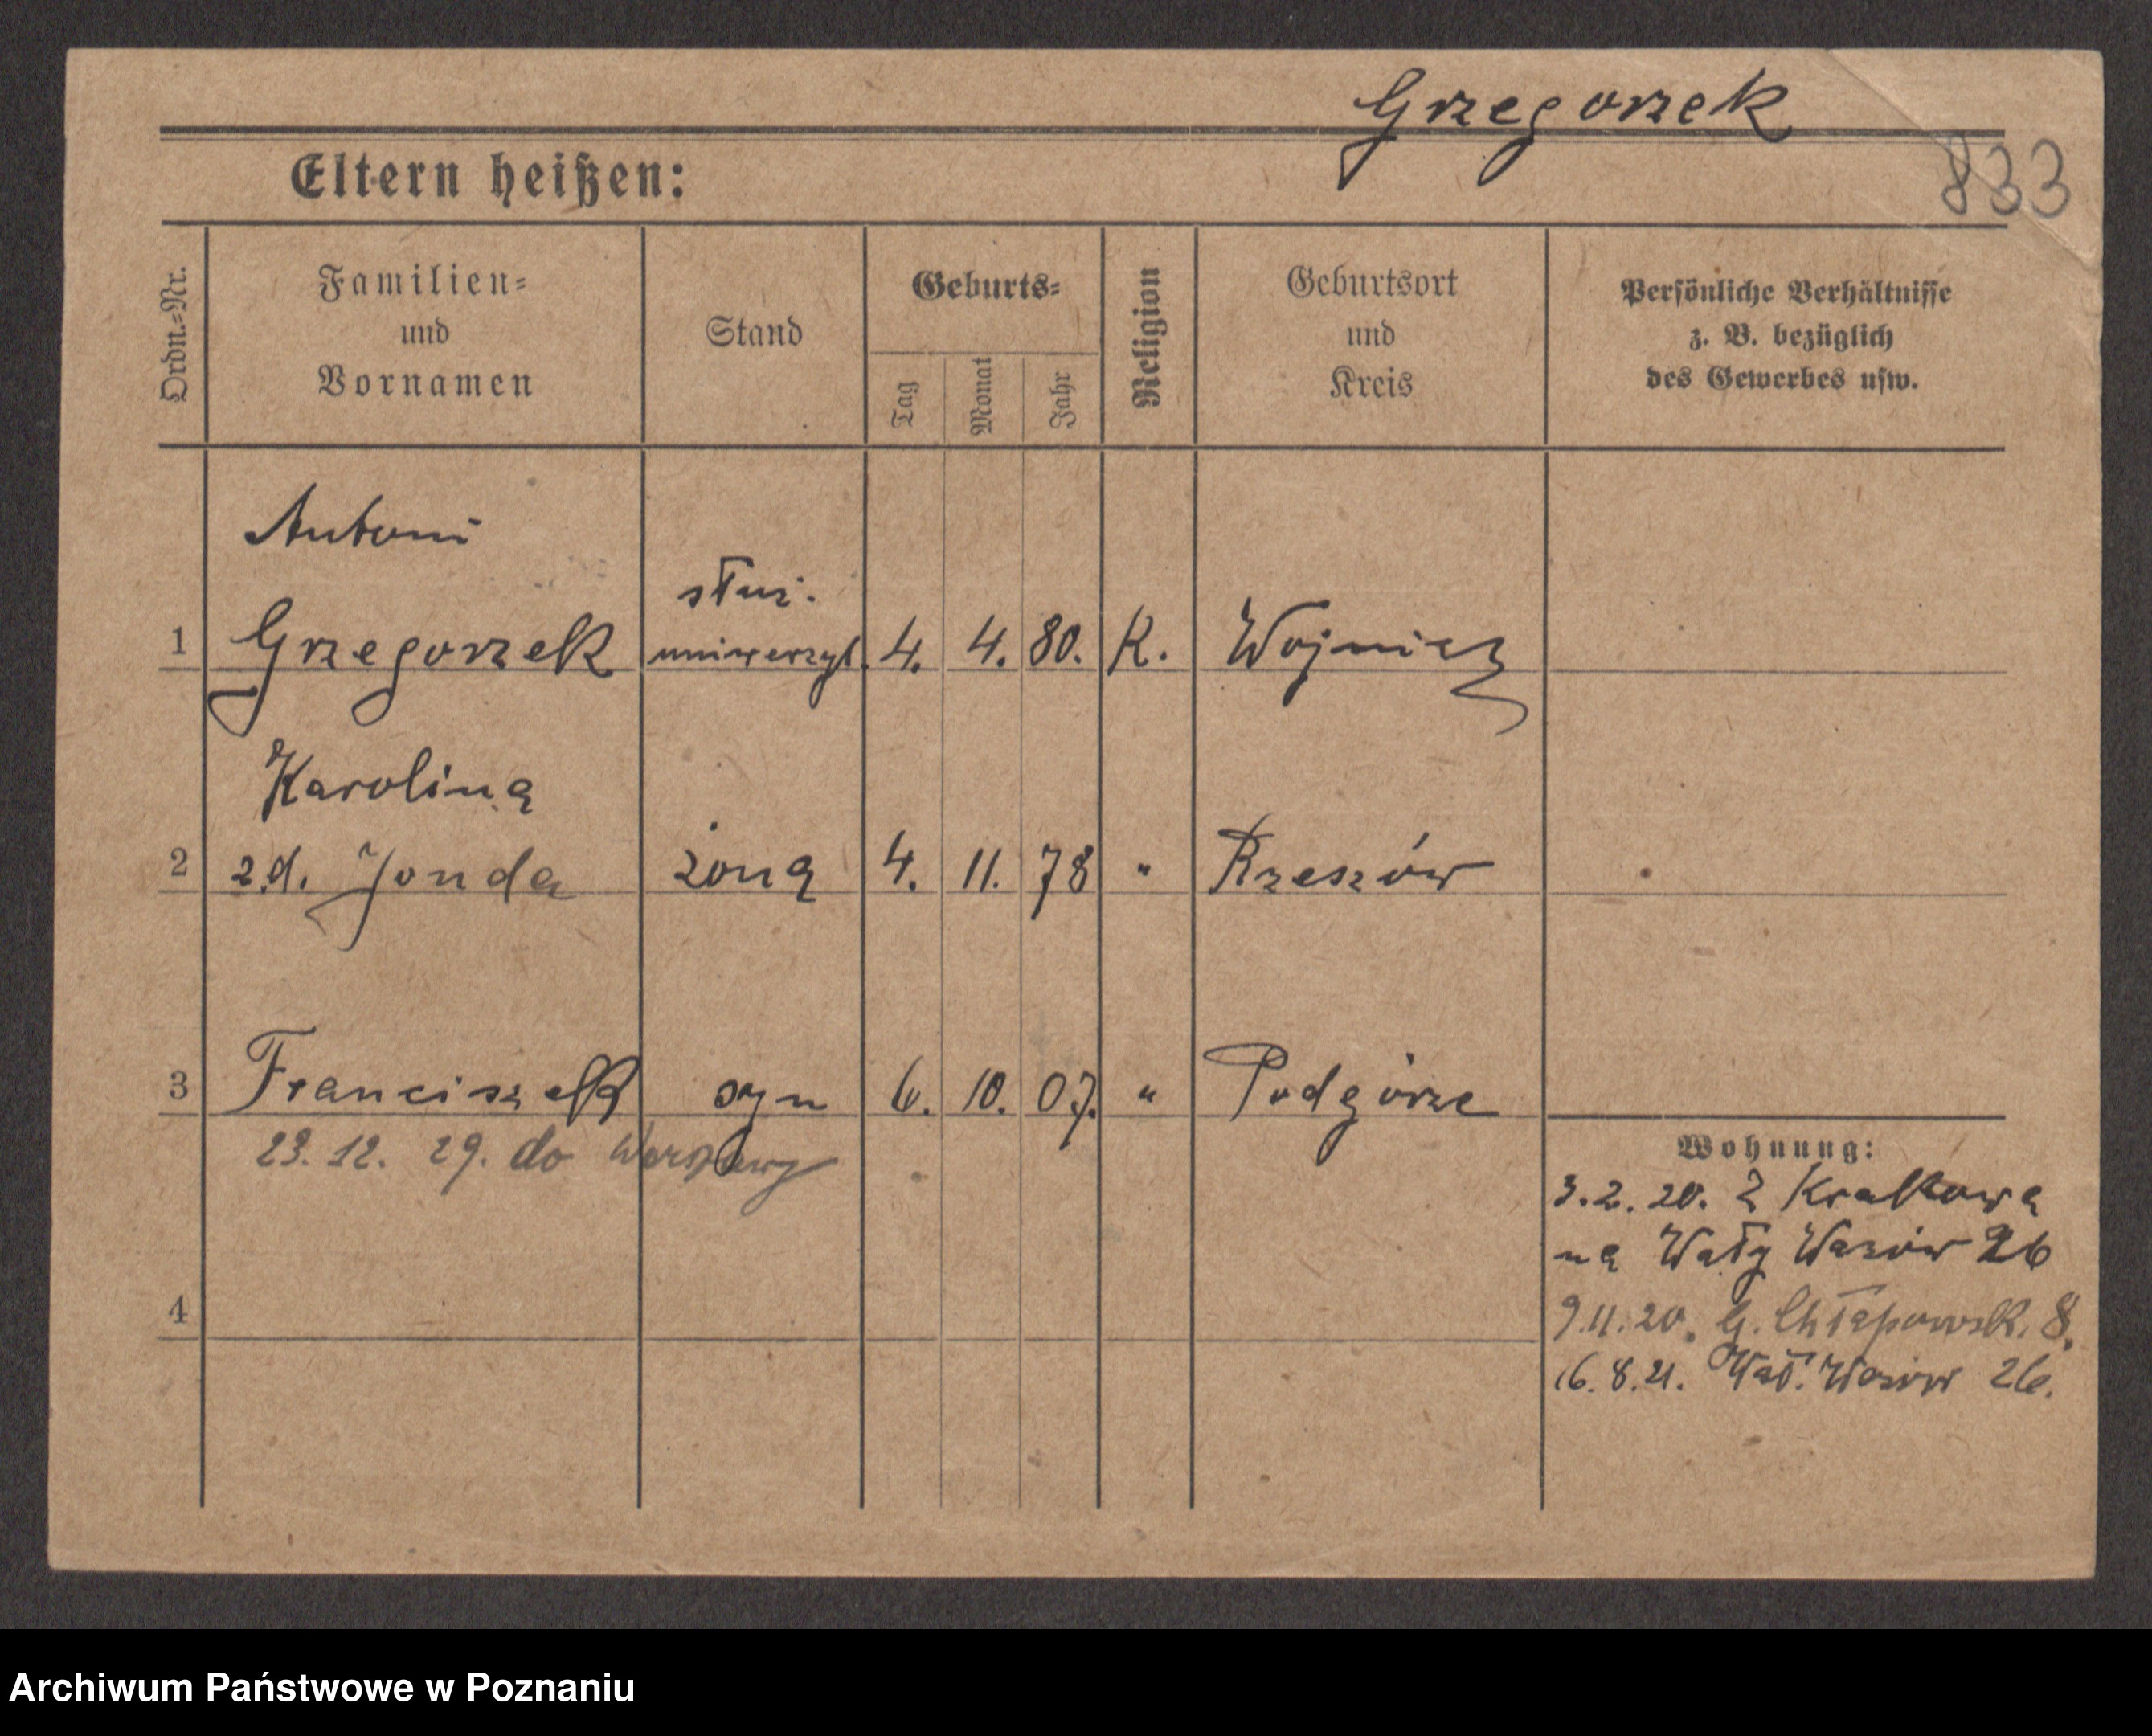 Grzegorzek
833
Eltern heißen:
Ordn.-Nr.
Familien-
und
Vornamen
Stand
Geburts-
Tag
Monat
Jahr
Religion
Geburtsort
und
Kreis
Persönliche Verhältnisse
z. B. bezüglich
des Gewerbes usw.
Antoni
służ.
1 Grzegorzek uniwerzyt. 4. 4. 80. K. Wojnicz
Karolina
2 z d. Jonda żona 4. 11. 78 " Rzeszów
3 Franciszek syn 6. 10. 07. " Podgórze
23. 12. 29. do Warszawy
Wohnung:
3. 2. 20. z Krakowa
na Wały Wazów 26
4
9.11.20. G. Chłapowsk. 8.
16. 8. 21. Wał. Wazów 26.
Archiwum Państwowe w Poznaniu